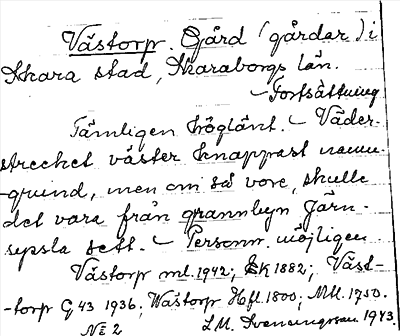 Västorp. Gård (gårdar) i
Skara stad, Skaraborgs län.
Fortsättning
Tämligen högländt. Väder-
strecket väster knappast namn-
-grund, men om så vore, skulle
det vara från grannbyn Järn-
sysla sett. Personn. möjligen
Västorp ml. 1942; Ek 1882; Väst-
-torp G 43 1936; Wästorp Hfl. 1800; Mtl. 1750.
№ 2 L.M. Svenungsson 1943